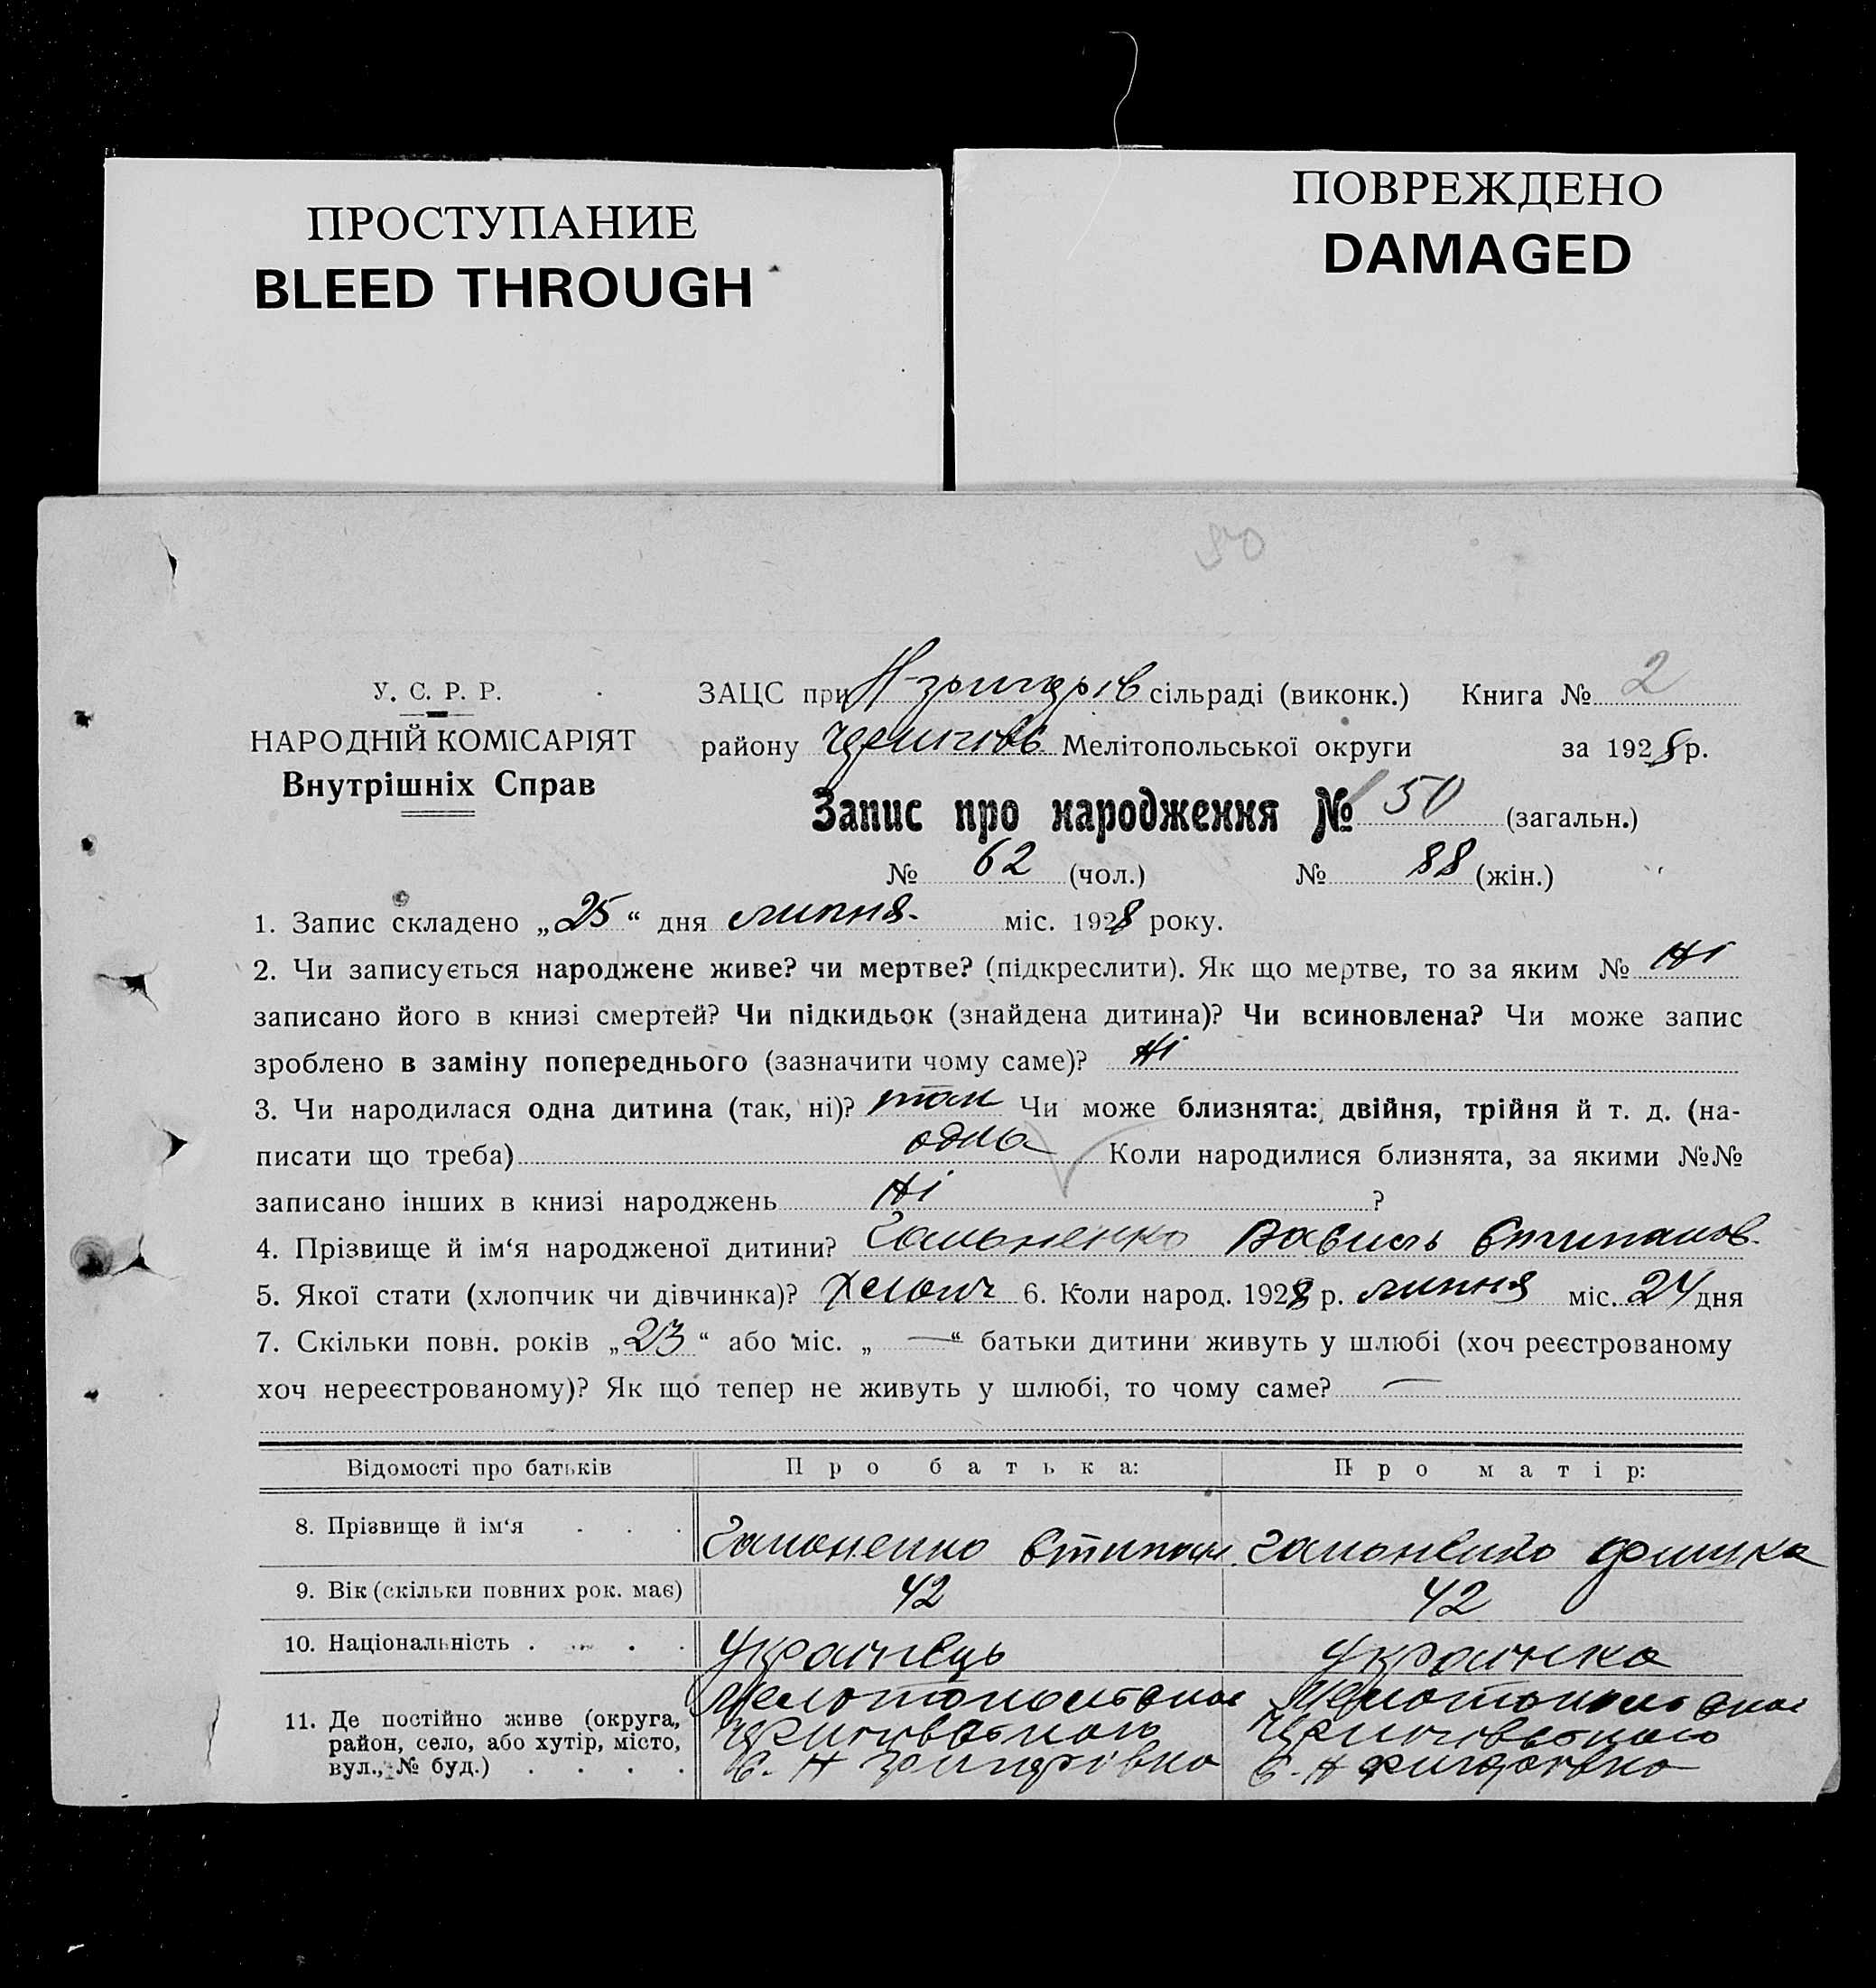 ПРОСТУПАНИЕ
BLEED THROUGH
ПОВРЕЖДЕНО
DAMAGED
У. С. Р. Р.
НАРОДНІЙ КОМІСАРІЯТ
Внутрішніх Справ
ЗАЦС при сільраді (виконк.) Книга № 2
району Мелітопольської округи за 1928 р.
Запис про народження № 150 (загальн.)
№ 62 (чол.) № 88 (жін.)
1. Запис складено „25“ дня липня міс. 1928 року.
2. Чи записується народжене живе? чи мертве? (підкреслити). Як що мертве, то за яким № Ні
записано його в книзі смертей? Чи підкидьок (знайдена дитина)? Чи всиновлена? Чи може запис
зроблено в заміну попереднього (зазначити чому саме)? Ні
3. Чи народилася одна дитина (так, ні)? так Чи може близнята: двійня, трійня й т. д. (на-
писати що треба) одна Коли народилися близнята, за якими №№
записано інших в книзі народжень Ні ?
4. Прізвище й ім‘я народженої дитини?
5. Якої стати (хлопчик чи дівчинка)? хлопч 6. Коли народ. 1928 р. липня міс. 24 дня
7. Скільки повн. років „23“ або міс. „—“ батьки дитини живуть у шлюбі (хоч реєстрованому
хоч нереєстрованому)? Як що тепер не живуть у шлюбі, то чому саме? —
Відомості про батьків Про батька: Про матір:
8. Прізвище й ім‘я
9. Вік (скільки повних рок. має) 42 42
10. Національність Українець Українка
11. Де постійно живе (округа,
район, село, або хутір, місто,
вул., № буд.)